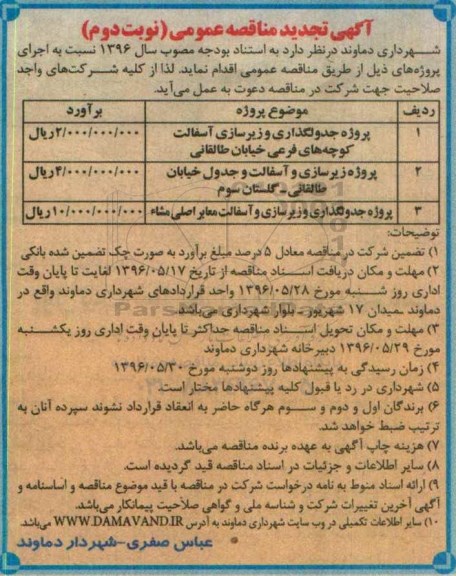 آگهی تجدید مناقصه عمومی (نوبت دوم)
شهرداری دماوند درنظر دارد به استناد بودجه مصوب سال ۱۳۹۶ نسبت به اجرای
پروژه‌های ذیل از طریق مناقصه عمومی اقدام نماید. لذا از کلیه شرکت‌های واجد
صلاحیت جهت شرکت در مناقصه دعوت به عمل می‌آید.
ردیف موضوع پروژه برآورد
۱ پروژه جدولگذاری و زیرسازی آسفالت ۲/۰۰۰/۰۰۰/۰۰۰ ریال
کوچه‌های فرعی خیابان طالقانی
۲ پروژه زیرسازی و آسفالت و جدول خیابان ۴/۰۰۰/۰۰۰/۰۰۰ ریال
طالقانی-گلستان سوم
۳ پروژه جدولگذاری و زیرسازی و آسفالت معابر اصلی مشاء ۱۰/۰۰۰/۰۰۰/۰۰۰ ریال
توضیحات:
۱) تضمین شرکت در مناقصه معادل ۵ درصد مبلغ برآورد به صورت چک تضمین شده بانکی
۲) مهلت و مکان دریافت اسناد مناقصه از تاریخ ۱۳۹۶/۰۵/۱۷ لغایت تا پایان وقت
اداری روز شنبه مورخ ۱۳۹۶/۰۵/۲۸ واحد قراردادهای شهرداری دماوند واقع در
دماوند ـ میدان ۱۷ شهریور ـ بلوار شهرداری می‌باشد.
۳) مهلت و مکان تحویل اسناد مناقصه حداکثر تا پایان وقت اداری روز یکشنبه
مورخ ۱۳۹۶/۰۵/۲۹ دبیرخانه شهرداری دماوند
۴) زمان رسیدگی به پیشنهادها روز دوشنبه مورخ ۱۳۹۶/۰۵/۳۰
۵) شهرداری در رد یا قبول کلیه پیشنهادها مختار است.
۶) برندگان اول و دوم و سوم هرگاه حاضر به انعقاد قرارداد نشوند سپرده آنان به
ترتیب ضبط خواهد شد.
۷) هزینه چاپ آگهی به عهده برنده مناقصه می‌باشد.
۸) سایر اطلاعات و جزئیات در اسناد مناقصه قید گردیده است.
۹) ارائه اسناد منوط به نامه درخواست شرکت در مناقصه با قید موضوع مناقصه و اساسنامه و
آگهی آخرین تغییرات شرکت و شناسه ملی و گواهی صلاحیت پیمانکار می‌باشد.
۱۰) سایر اطلاعات تکمیلی در وب سایت شهرداری دماوند به آدرس WWW.DAMAVAND.IR می‌باشد.
عباس صفری-شهردار دماوند